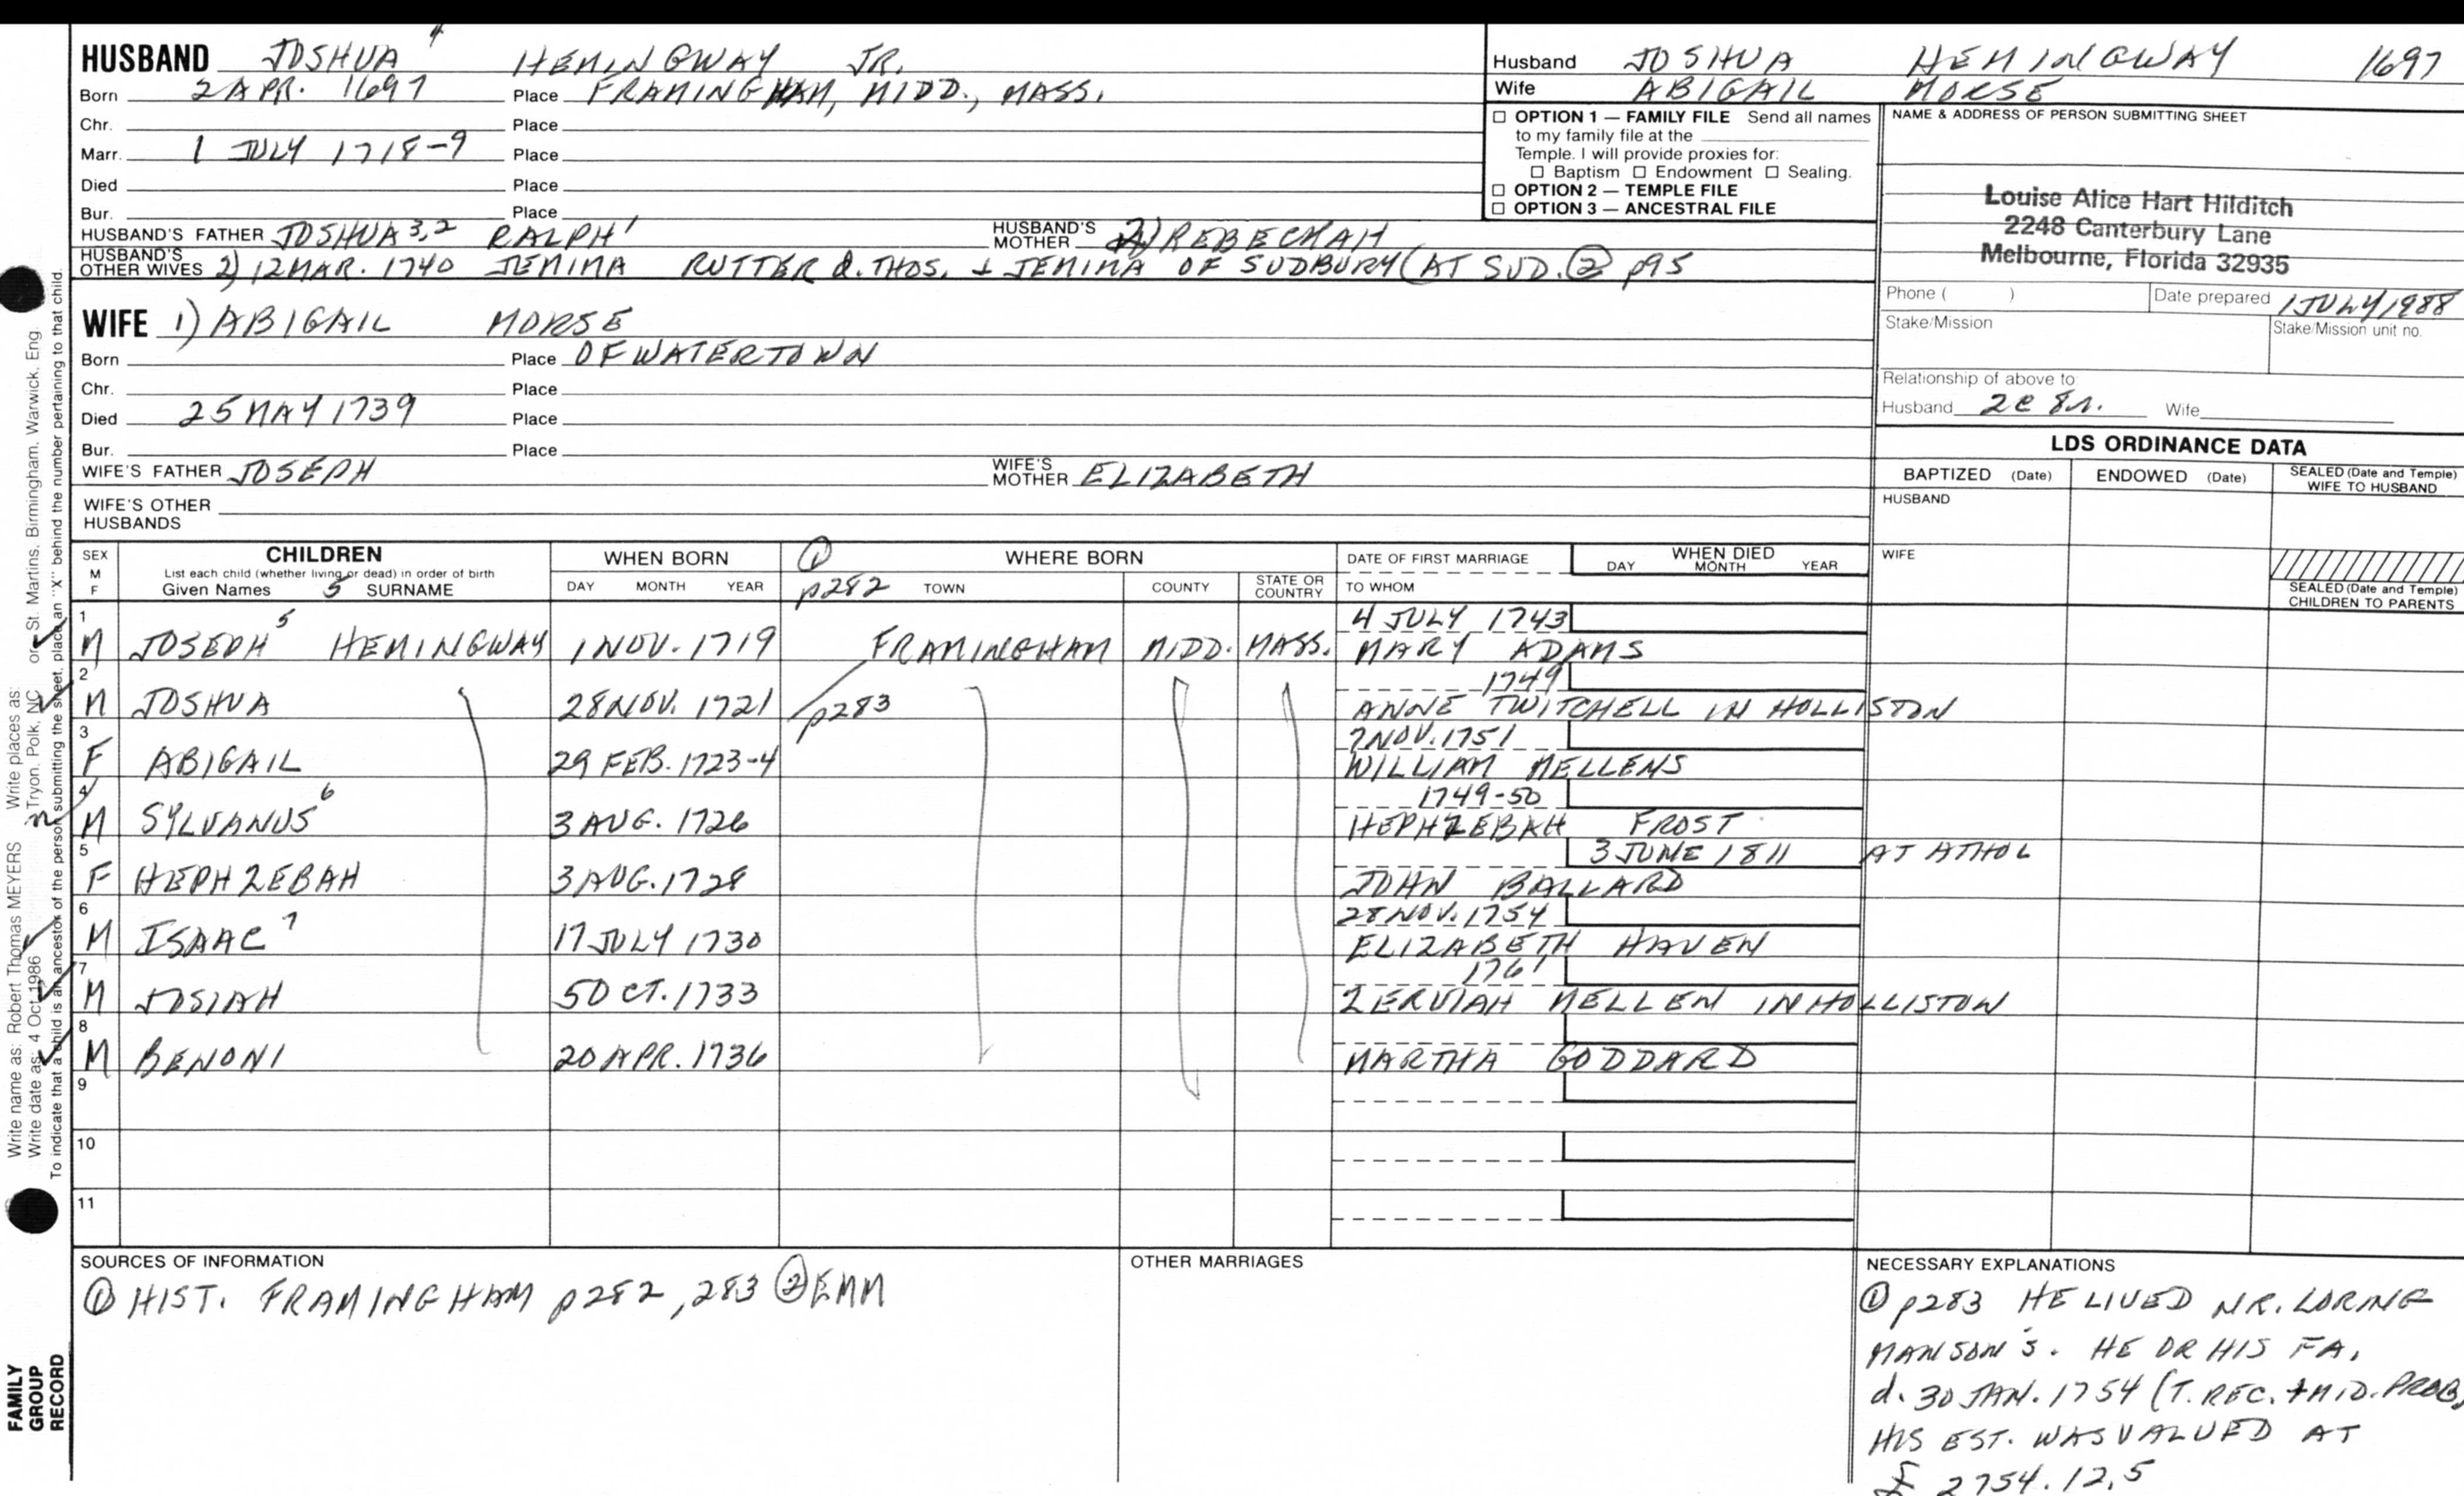 HUSBAND JOSHUA 4 HEMINGWAY JR.
Born 2 APR. 1697 Place FRAMINGHAM, MIDD., MASS.
Chr. Place
Marr. 1 JULY 1718-9 Place
Died Place
Bur. Place
HUSBAND'S FATHER JOSHUA 3,2 RALPH 1 HUSBAND'S MOTHER 2) REBECKAH
HUSBAND'S OTHER WIVES 2) 12 MAR. 1740 JEMIMA RUTTER d. THOS. + JEMIMA OF SUDBURY (AT SUD. ② p95
WIFE 1) ABIGAIL MORSE
Born Place OF WATERTOWN
Chr. Place
Died 25 MAY 1739 Place
Bur. Place
WIFE'S FATHER JOSEPH WIFE'S MOTHER ELIZABETH
WIFE'S OTHER HUSBANDS
Husband JOSHUA HEMINGWAY 1697
Wife ABIGAIL MORSE
☐ OPTION 1 — FAMILY FILE Send all names
to my family file at the
Temple. I will provide proxies for:
☐ Baptism ☐ Endowment ☐ Sealing.
☐ OPTION 2 — TEMPLE FILE
☐ OPTION 3 — ANCESTRAL FILE
NAME & ADDRESS OF PERSON SUBMITTING SHEET
Louise Alice Hart Hilditch
2248 Canterbury Lane
Melbourne, Florida 32935
Phone ( ) Date prepared 1 JULY 1988
Stake/Mission Stake/Mission unit no.
Relationship of above to
Husband 2c 8r. Wife
LDS ORDINANCE DATA
BAPTIZED (Date) ENDOWED (Date) SEALED (Date and Temple) WIFE TO HUSBAND
HUSBAND
WIFE
SEALED (Date and Temple) CHILDREN TO PARENTS
SEX M F CHILDREN WHEN BORN ① WHERE BORN DATE OF FIRST MARRIAGE WHEN DIED
List each child (whether living or dead) in order of birth DAY MONTH YEAR
Given Names 5 SURNAME DAY MONTH YEAR p282 TOWN COUNTY STATE OR COUNTRY TO WHOM
1 4 JULY 1743
M JOSEPH 5 HEMINGWAY 1 NOV. 1719 FRAMINGHAM MIDD. MASS. MARY ADAMS
2 1749
M JOSHUA 28 NOV. 1721 p283 ANNE TWITCHELL IN HOLLISTON
3 7 NOV. 1751
F ABIGAIL 29 FEB. 1723-4 WILLIAM MELLENS
4 1749-50
M SYLVANUS 6 3 AUG. 1726 HEPHZEBAH FROST
5 3 JUNE 1811 AT ATHOL
F HEPHZEBAH 3 AUG. 1728 JOHN BALLARD
6 28 NOV. 1754
M ISAAC 7 17 JULY 1730 ELIZABETH HAVEN
7 1761
M JOSIAH 5 OCT. 1733 ZERVIAH MELLEN IN HOLLISTON
8
M BENONI 20 APR. 1736 MARTHA GODDARD
9
10
11
SOURCES OF INFORMATION
① HIST. FRAMINGHAM p282, 283 ② EMM
OTHER MARRIAGES
NECESSARY EXPLANATIONS
① p283 HE LIVED NR. LORING
MANSON'S. HE OR HIS FA.
d. 30 JAN. 1754 (T. REC. + MID. PROB.)
HIS EST. WAS VALUED AT
£ 2754.12.5
Write name as: Robert Thomas MEYERS Write places as: or St. Martins, Birmingham, Warwick, Eng.
Write date as: 4 Oct 1986 Tryon, Polk, NC
To indicate that a child is an ancestor of the person submitting the sheet, place an "X" behind the number pertaining to that child.
FAMILY
GROUP
RECORD